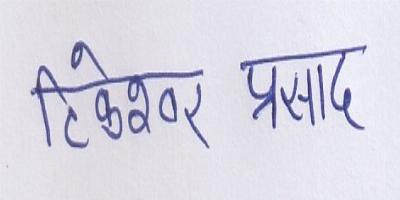 टिकेश्वर प्रसाद